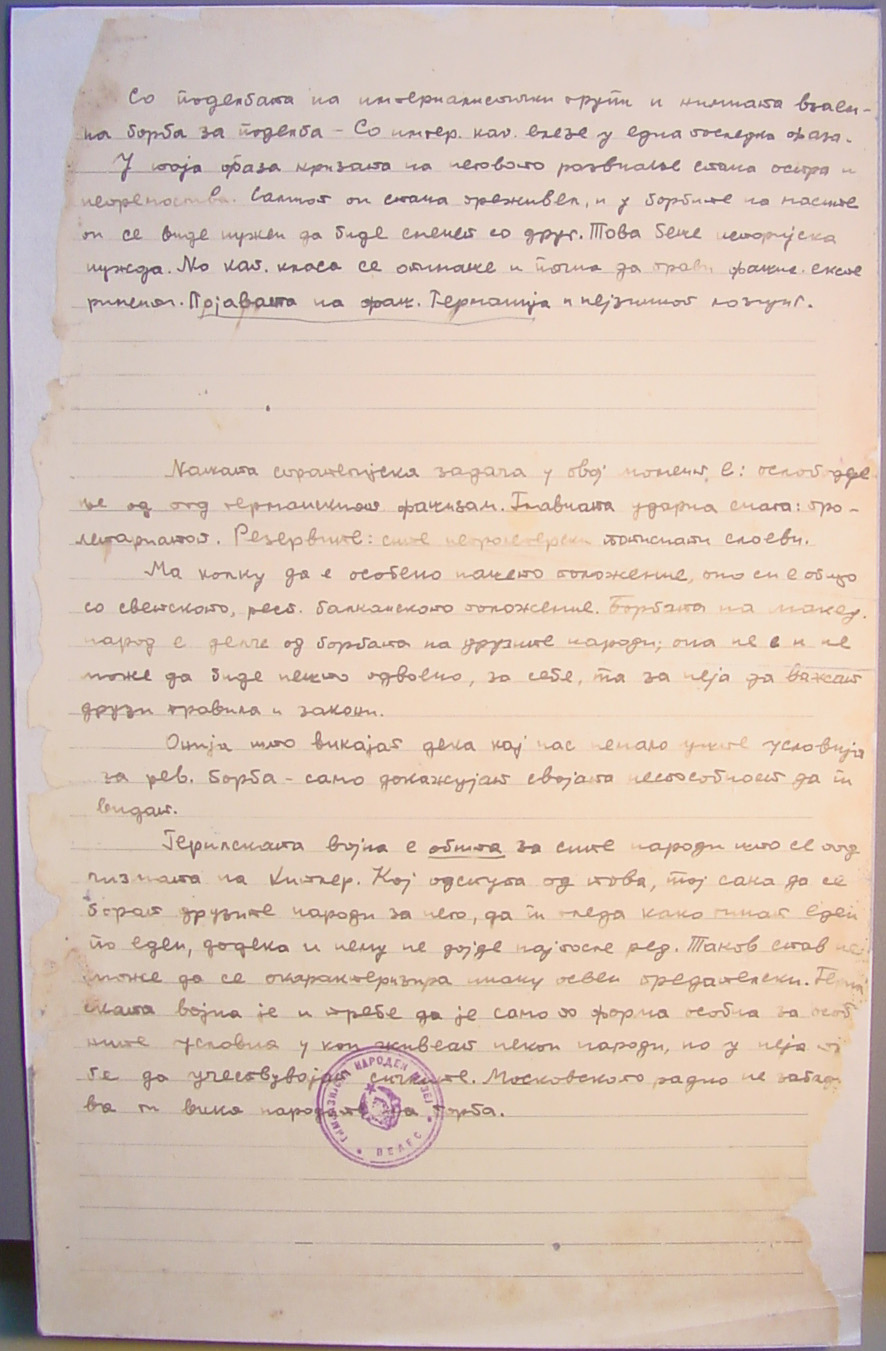 Со поделбата на империалистички групи и нимната взаем-
на борба за поделба - Со импер. кап. влезе у една последна фаза.
У тоја фаза кризата на неговото развиање стана остра и
непремостива. Самиот он стана преживел, и у борбите на масите
он се виде нужен да биде сменет со друг. Това беше историјска
нужда. Но кап. класа се отимаше и почна да прави фашис. експе
рименти. Појавата на фаш. Германија и нејзиниот лозунг.
Нашата стратегијска задача у овој момент е: ослободуе
ње од под германскиот фашизам. Главната ударна снага: про-
летариатот. Резервите: сите непролетерски потиснати слоеви.
Ма колку да е особено нашето положение, оно си е общо
со светското, респ. балканското положение. Борбата на макед.
народ е делче од борбата на друзите народи; она не е и не
може да биде нешто одвоено, за себе, та за неја да важат
друзи правила и закони.
Онија што викајат дека кај нас немало уште условија
за рев. борба - само докажујат својата неспособност да ги
видат.
Герилската војна е општа за сите народи што се под
чизмата на Хитлер. Кој одступа од това, тој сака да се
борат друзите народи за него, да ги гледа како гинат еден
по еден, додека и нему не дојде најпосле ред. Таков став не
може да се окарактеризира инаку освен предателски. Герил
ската војна је и требе да је само по форма особна за особ
ните условиа у кои живеат некои народи, но у неја тре
бе да учествувојат сичките. Московското радио не забад
ва ги вика народите на борба.
НАРОДЕН МУЗЕЈ
ВЕЛЕС